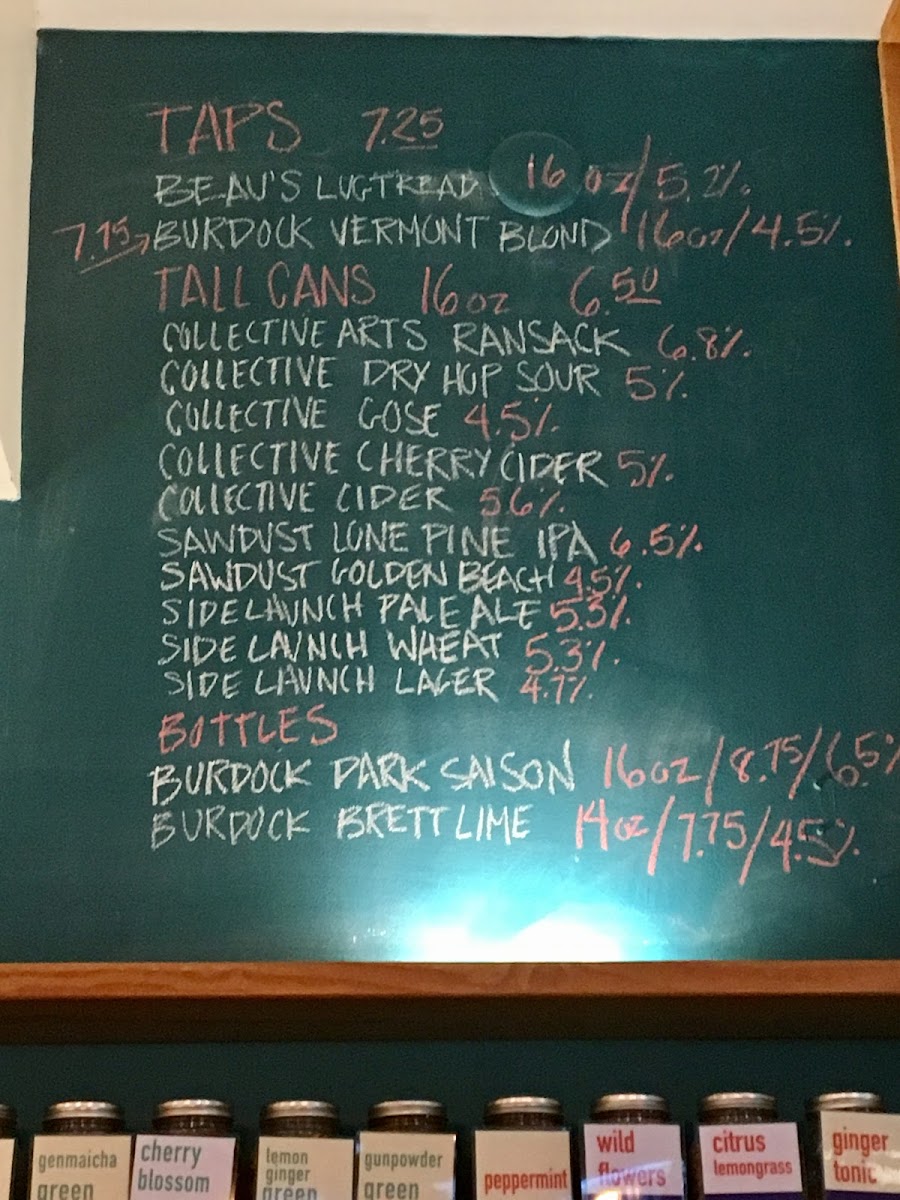 TAPS 7.25
BEAU'S LUGTREAD 16 oz/5.2%
7.75 BURDOCK VERMONT BLOND 16oz/4.5%
TALL CANS 16oz 6.50
COLLECTIVE ARTS RANSACK 6.8%
COLLECTIVE DRY HOP SOUR 5%
COLLECTIVE GOSE 4.5%
COLLECTIVE CHERRY CIDER 5%
COLLECTIVE CIDER 5.6%
SAWDUST LONE PINE IPA 6.5%
SAWDUST GOLDEN BEACH 4.5%
SIDE LAUNCH PALE ALE 5.3%
SIDE LAUNCH WHEAT 5.3%
SIDE LAUNCH LAGER 4.7%
BOTTLES
BURDOCK DARK SAISON 16oz/8.75/6.5%
BURDOCK BRETT LIME 14oz/7.75/4.5%
genmaicha
green
cherry
blossom
lemon
ginger
green
gunpowder
green
peppermint
wild
flowers
citrus
lemongrass
ginger
tonic